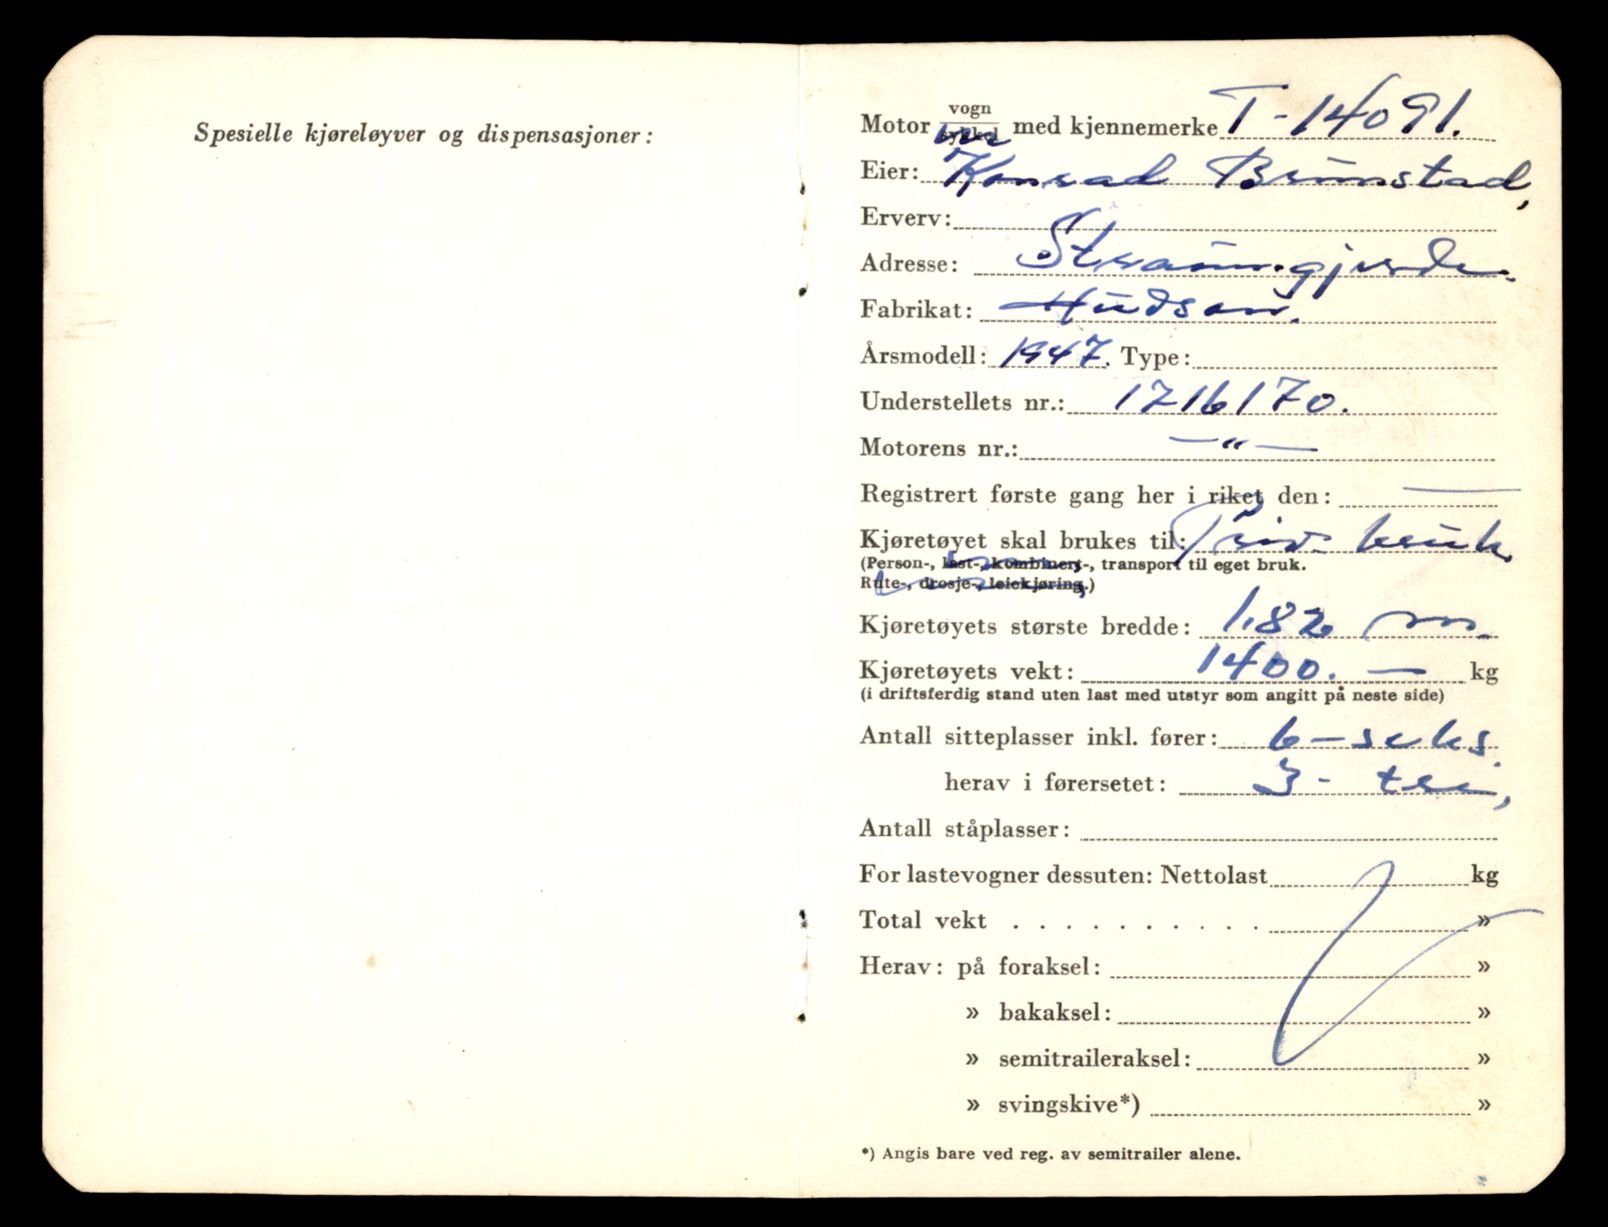 Spesielle kjøreløyver og dispensasjoner:
Motor vogn sykkel med kjennemerke T-14091.
Eier: Konrad Brunstad,
Erverv:
Adresse: Straumgjerde.
Fabrikat: Hudson.
Årsmodell: 1947. Type:
Understellets nr.: 1716170.
Motorens nr.: —"—
Registrert første gang her i riket den: —
Kjøretøyet skal brukes til: Priv. bruk
(Person-, last-, kombinert-, transport til eget bruk.
Rute-, drosje-, leiekjøring.)
Kjøretøyets største bredde: 1.82 m.
Kjøretøyets vekt: 1400. — kg
(i driftsferdig stand uten last med utstyr som angitt på neste side)
Antall sitteplasser inkl. fører: 6 – seks.
herav i førersetet: 3 - tre,
Antall ståplasser:
For lastevogner dessuten: Nettolast kg
Total vekt . . . . . . . . . . »
Herav: på foraksel: »
» bakaksel: »
» semitraileraksel: »
» svingskive*) »
*) Angis bare ved reg. av semitrailer alene.